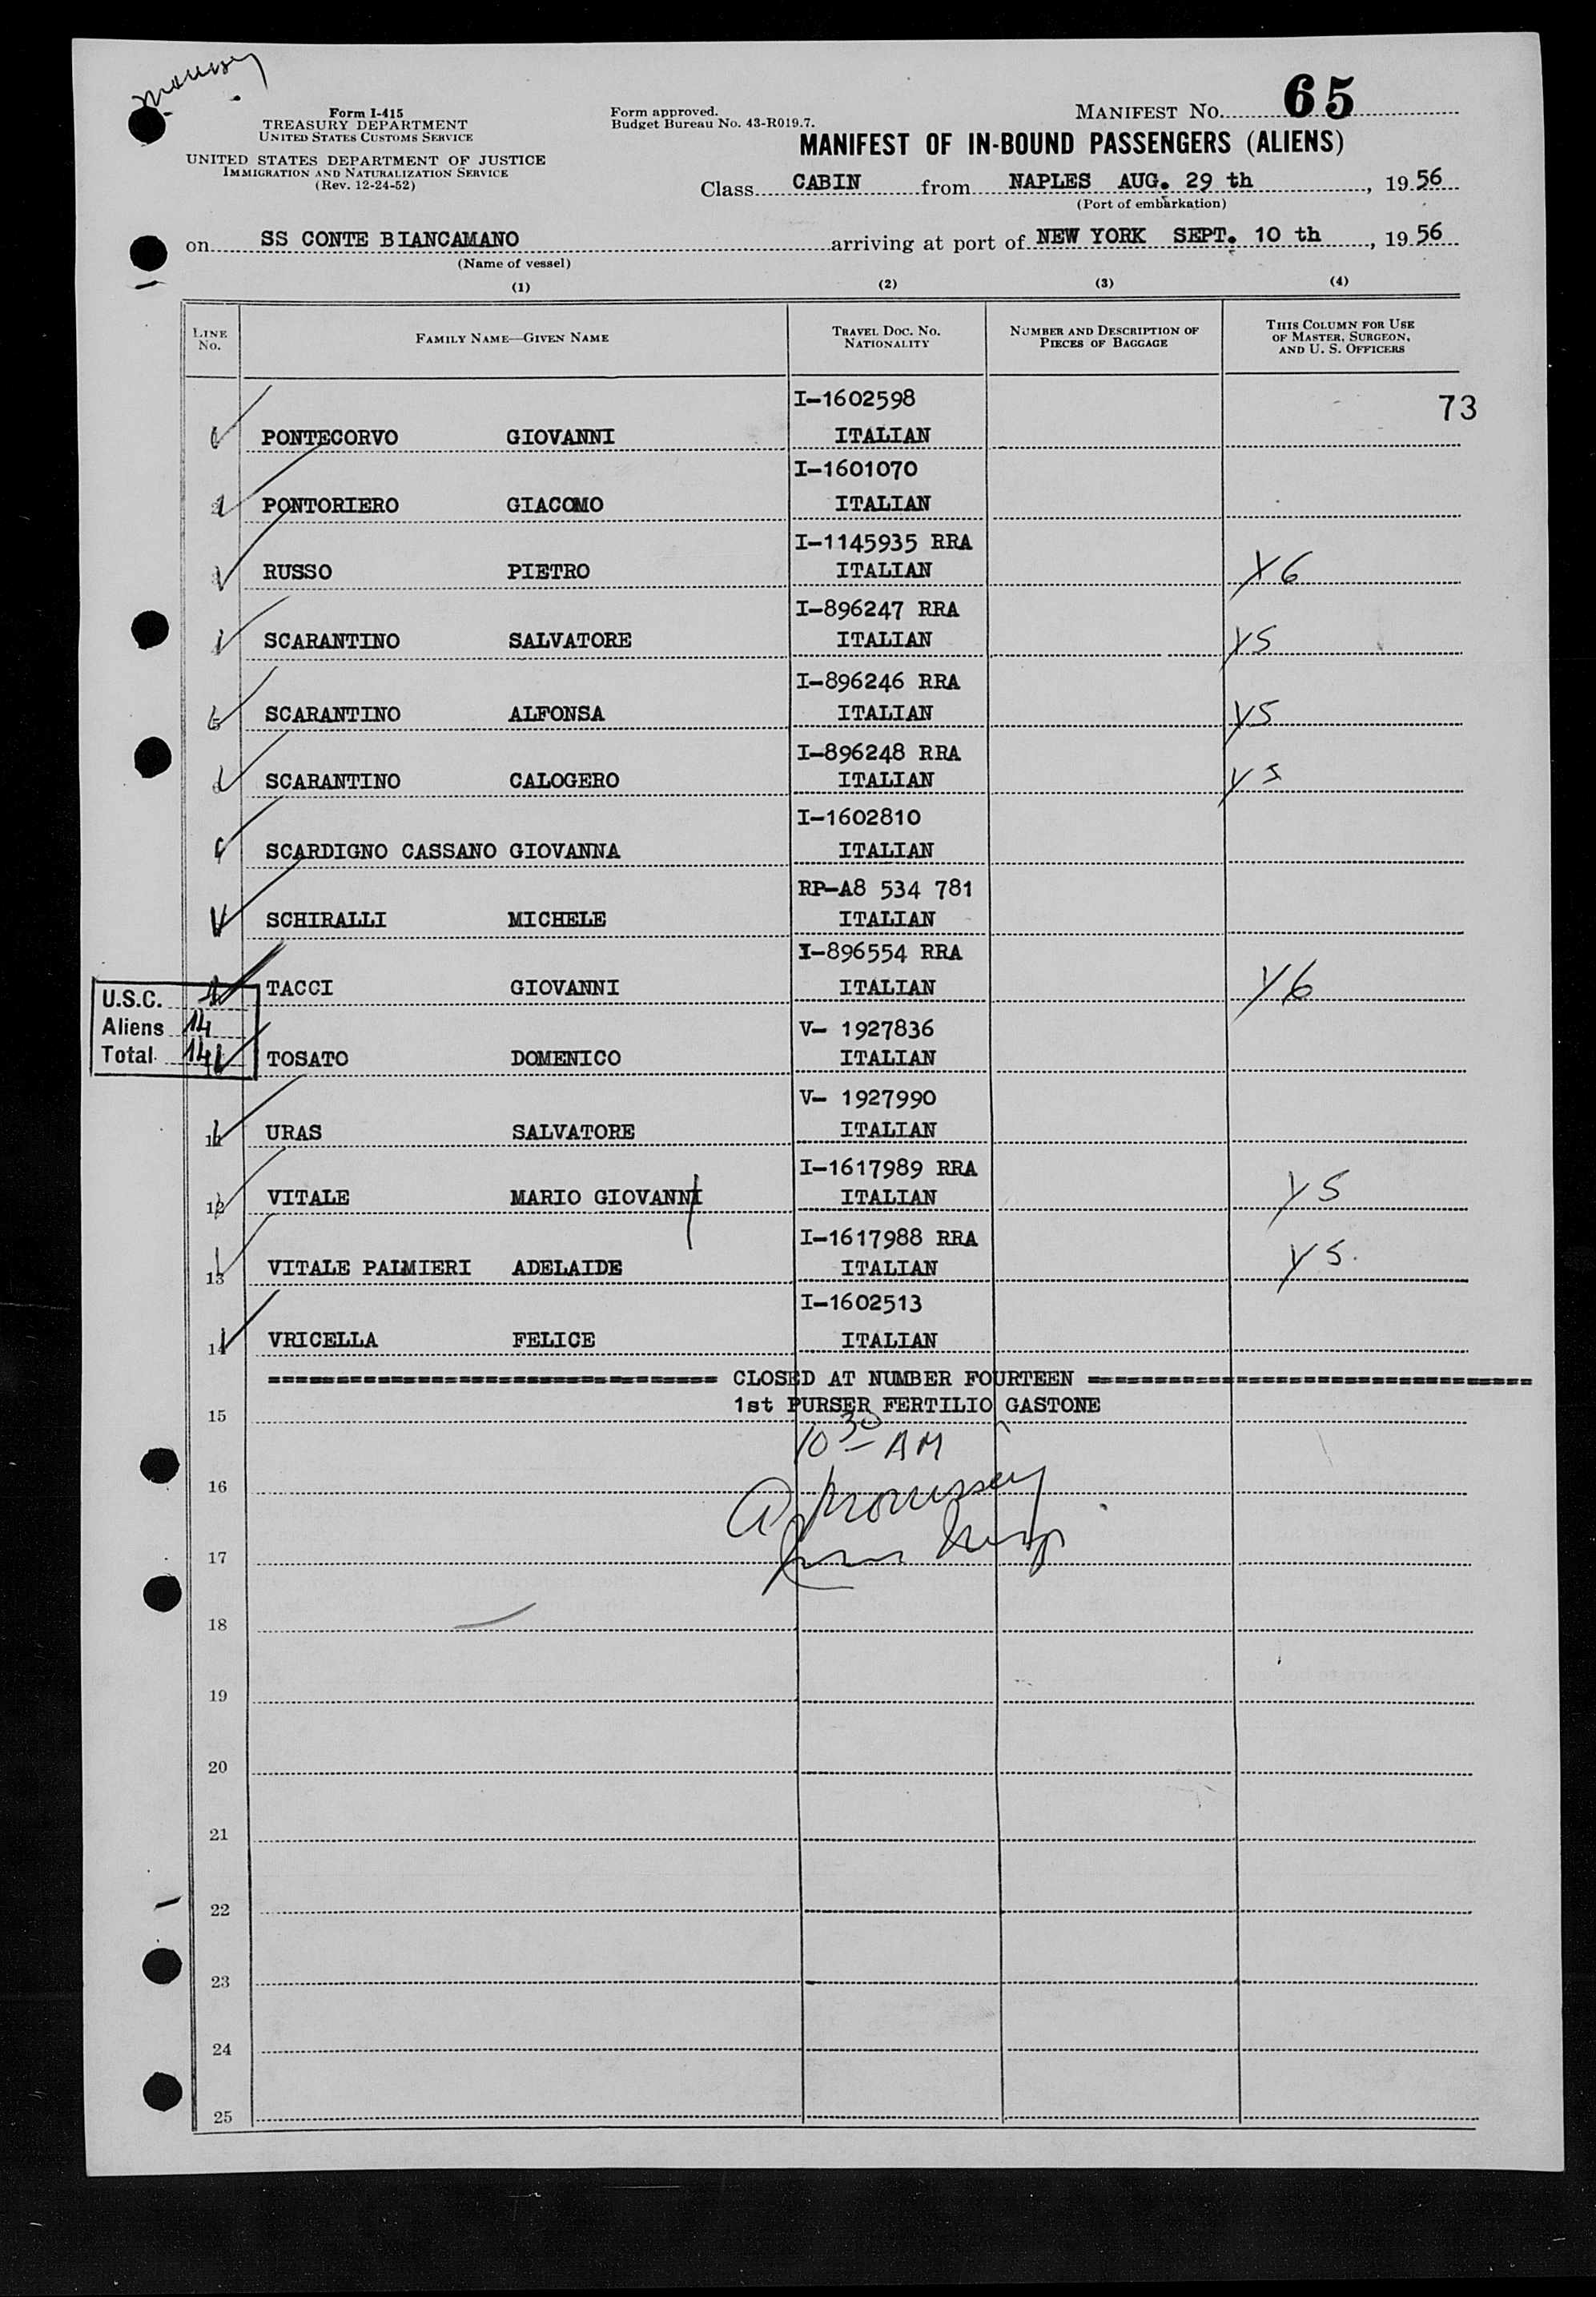 Form I-415
TREASURY DEPARTMENT
UNITED STATES CUSTOMS SERVICE
UNITED STATES DEPARTMENT OF JUSTICE
IMMIGRATION AND NATURALIZATION SERVICE
(Rev. 12-24-52)
Form approved.
Budget Bureau No. 43-R019.7.
MANIFEST NO. 65
MANIFEST OF IN-BOUND PASSENGERS (ALIENS)
Class CABIN from NAPLES AUG. 29 th, 1956
(Port of embarkation)
on SS CONTE BIANCAMANO arriving at port of NEW YORK SEPT. 10 th, 1956
(Name of vessel)
(1) (2) (3) (4)
LINE No. FAMILY NAME—GIVEN NAME TRAVEL DOC. NO. NATIONALITY NUMBER AND DESCRIPTION OF PIECES OF BAGGAGE THIS COLUMN FOR USE OF MASTER, SURGEON, AND U. S. OFFICERS
73
I-1602598
PONTECORVO GIOVANNI ITALIAN
I-1601070
PONTORIERO GIACOMO ITALIAN
I-1145935 RRA
RUSSO PIETRO ITALIAN Y6
I-896247 RRA
SCARANTINO SALVATORE ITALIAN Y5
I-896246 RRA
5 SCARANTINO ALFONSA ITALIAN Y5
I-896248 RRA
SCARANTINO CALOGERO ITALIAN Y5
I-1602810
SCARDIGNO CASSANO GIOVANNA ITALIAN
RP-A8 534 781
SCHIRALLI MICHELE ITALIAN
I-896554 RRA
TACCI GIOVANNI ITALIAN Y6
U.S.C.
Aliens 14
Total 14
V- 1927836
TOSATO DOMENICO ITALIAN
V- 1927990
11 URAS SALVATORE ITALIAN
I-1617989 RRA
12 VITALE MARIO GIOVANNI ITALIAN Y5
I-1617988 RRA
13 VITALE PALMIERI ADELAIDE ITALIAN Y5.
I-1602513
14 VRICELLA FELICE ITALIAN
CLOSED AT NUMBER FOURTEEN
1st PURSER FERTILIO GASTONE
15
10 30 AM
16
17
18
19
20
21
22
23
24
25